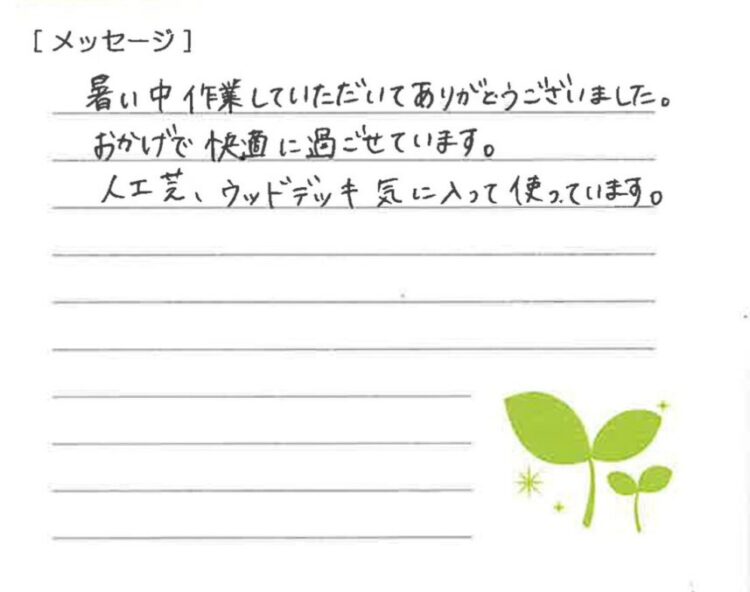 [メッセージ]
暑い中作業していただいてありがとうございました。
おかげで快適に過ごせています。
人工芝、ウッドデッキ気に入って使っています。